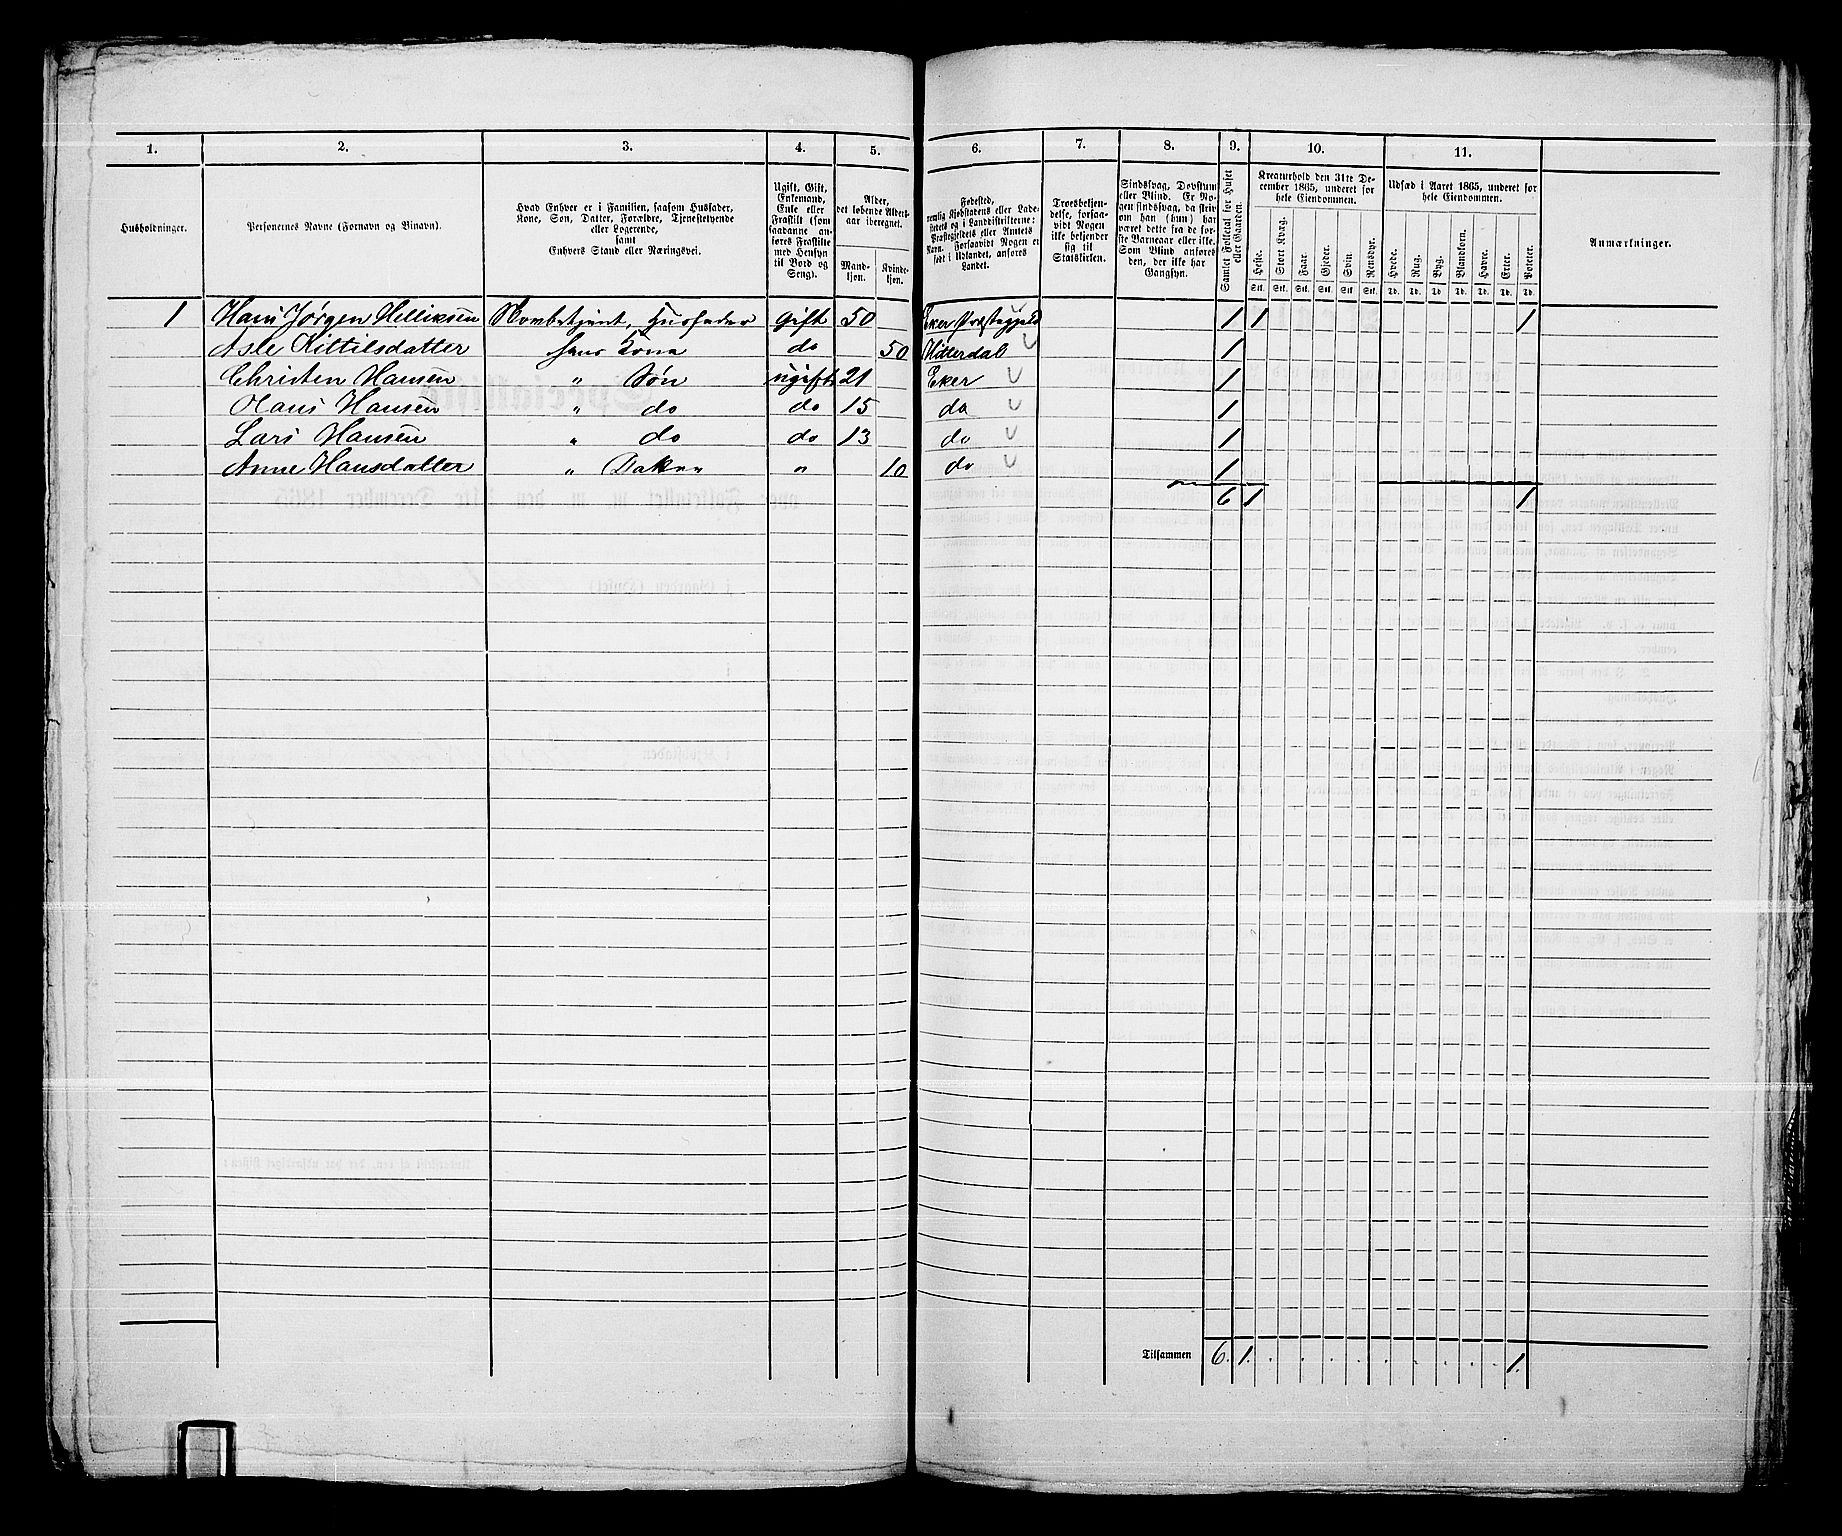 1. 2. 3. 4. 5. 6. 7. 8. 9. 10. 11.
Husholdninger.
Personernes Navne (Fornavn og Binavn).
Hvad Enhver er i Familien, saasom Husfader,
Kone, Søn, Datter, Forældre, Tjenestetyende
eller Logerende,
samt
Enhvers Stand eller Næringsvei.
Ugift, Gift,
Enkemand,
Enke eller
Fraskilt (som
saadanne an-
føres Fraskilte
med Hensyn
til Bord og
Seng).
Alder,
det løbende Alders-
aar iberegnet.
Mand-
kjøn.
Kvinde-
kjøn.
Fødested,
nemlig Kjøbstadens eller Lade-
stedets og i Landdistrikterne:
Præstegjeldets eller Annexets
Navn.
Forsaavidt Nogen er
født i Udlandet, anføres
Landet.
Troesbekjen-
delse, forsaa-
vidt Nogen
ikke bekjender
sig til
Statskirken.
Sindssvag, Døvstum
eller Blind. Er No-
gen sindssvag, da skriv
om han (hun) har
været dette fra de for-
ste Barneaar eller ikke.
Som Blind anføres
den, der ikke har
Gangsyn.
Samlet Folketal for Huset
eller Gaarden.
Kreaturhold den 31te De-
cember 1865, underet for
hele Eiendommen.
Heste. Stort Kvæg. Faar. Gjeder. Svin. Rensdyr.
Stk. Stk. Stk. Stk. Stk. Stk.
Udsæd i Aaret 1865, underet for
hele Eiendommen.
Hvede. Rug. Byg. Blandkorn. Havre. Erter. Poteter.
Td. Td. Td. Td. Td. Td. Td.
Anmærkninger.
1 Hans Jørgen Helliksen Husfader gift 50 Eker Præstegjeld 1 1 1
Asle Kittilsdatter hans Kone do 50 Hitterdal 1
Christen Hansen " Søn ugift 21 Eker 1
Olaus Hansen " do do 15 do 1
Lars Hansen " do do 13 do 1
Anne Hansdatter " " 10 do 1
6 1 1
Tilsammen 6. 1. 1.